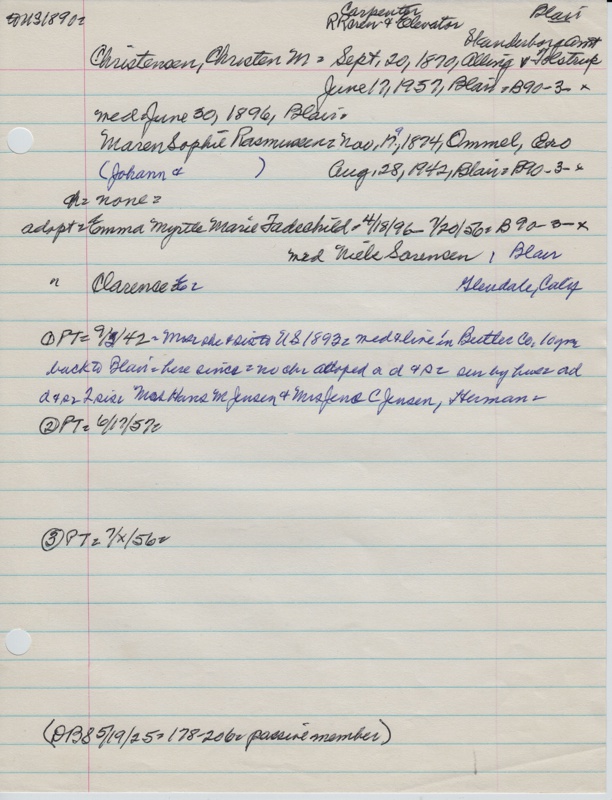 Carpenter Blair
US 1890= R R Sec & Elevator
Skanderborg amt
Christensen, Christen M = Sept, 20, 1870, Alling & Tolstrup
June 17, 1957, Blair = B90-3-x
med = June 30, 1896, Blair =
Maren Sophie Rasmussen = Nov, 17, 1874, Ommel,
(Johann & ) Aug, 28, 1942, Blair = B90-3-x
ch = none =
adopt = Emma Myrtle Marie = 4/18/96 - 7/20/56 = B90-3-x
med Niels Sorensen, Blair
" Clarence = Glendale, Calif
① PT = 9/3/42 = Mrs she & sis to US 1893 = med & live in Butler Co, 10 yrs
back to Blair = here since = no chr adopted a d & s = sur by hus & ad
d & s = 2 sis = Mrs Hans M Jensen & Mrs Jens C Jensen, Herman =
② PT = 6/17/57 =
③ PT = 7/x/56 =
(DBS 5/19/25 = 178-206 = passive member)